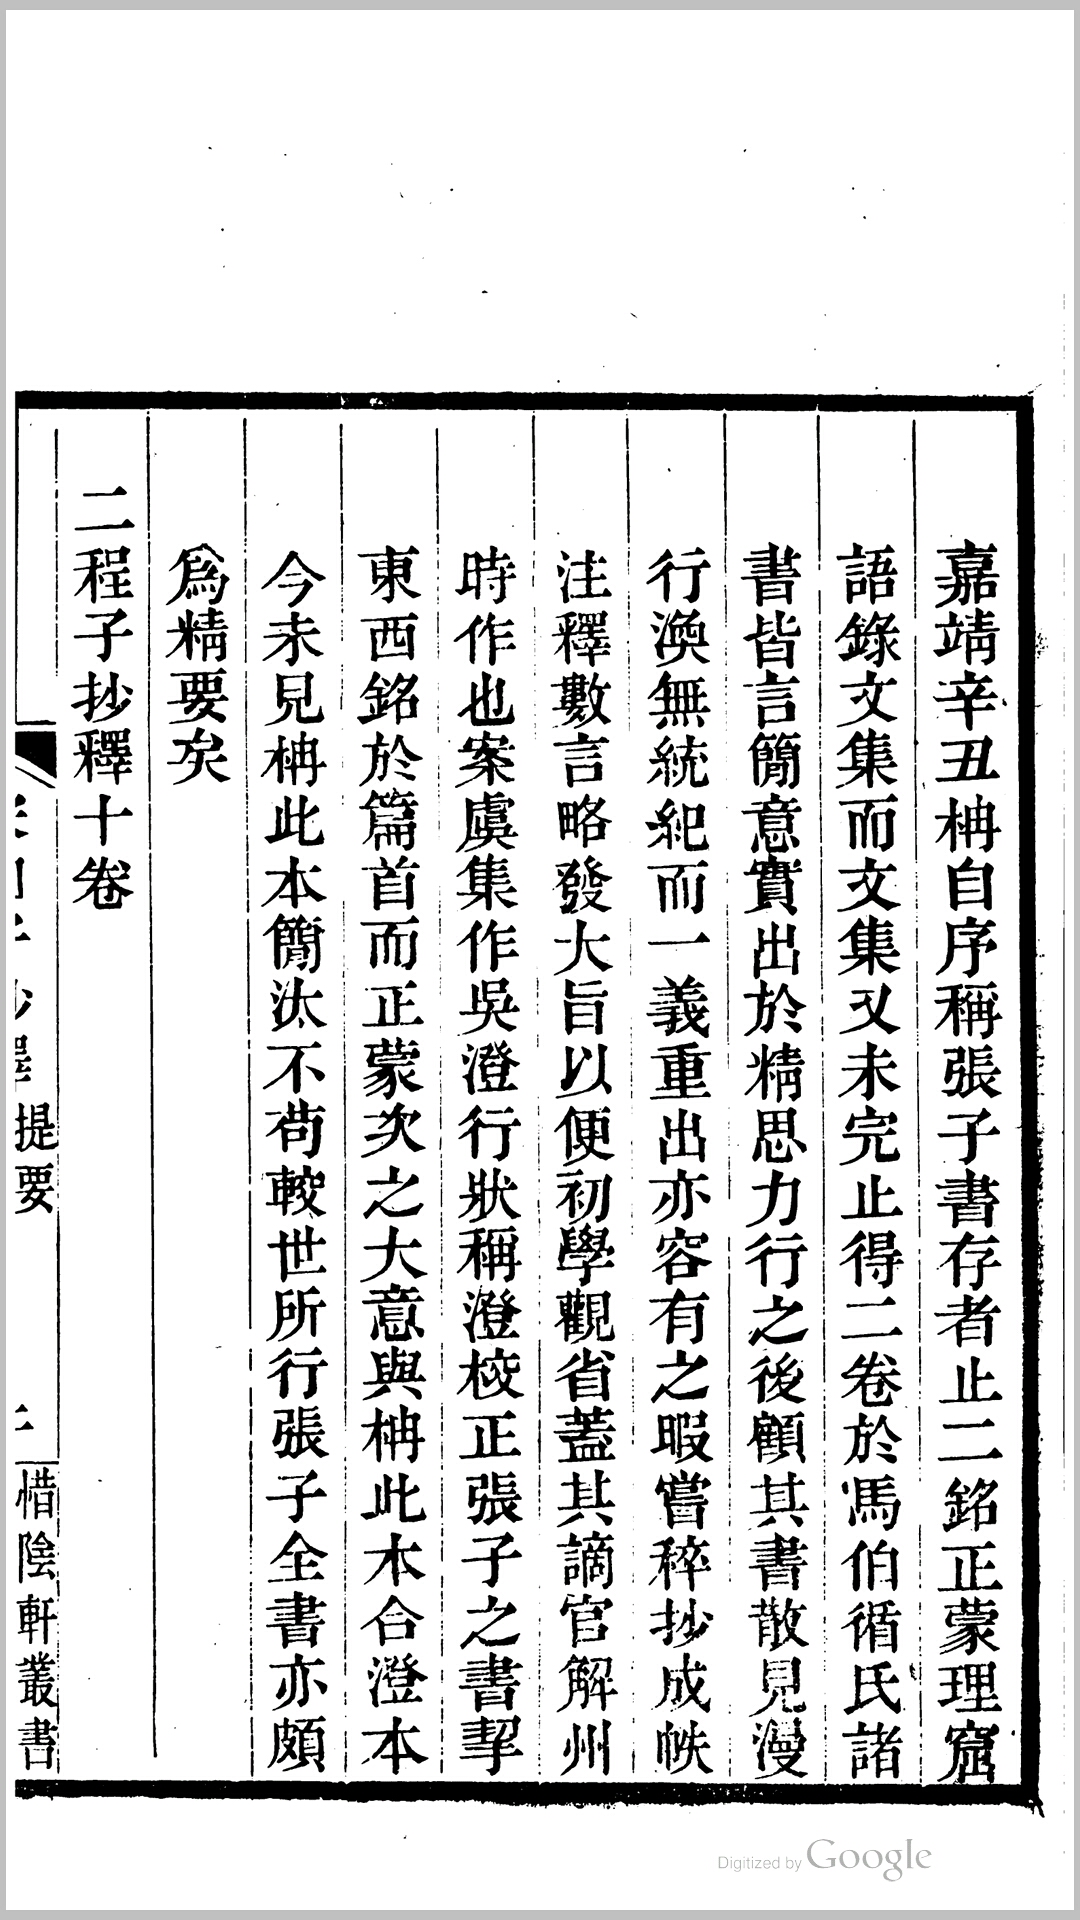 嘉靖辛丑柟自序稱張子書存者止二銘正蒙理窟
語錄文集而文集又未完止得二卷於馮伯循氏諸
書皆言簡意實出於精思力行之後顧其書散見漫
行渙無統紀而一義重出亦容有之暇嘗稡抄成帙
注釋數言略發大旨以便初學觀省蓋其謫官解州
時作也案虞集作吳澄行狀稱澄校正張子之書挈
東西銘於篇首而正蒙次之大意與柟此本合澄本
今未見柟此本簡汰不苟較世所行張子全書亦頗
爲精要矣
二程子抄釋十卷
提要
惜陰軒叢書
Digitized by Google